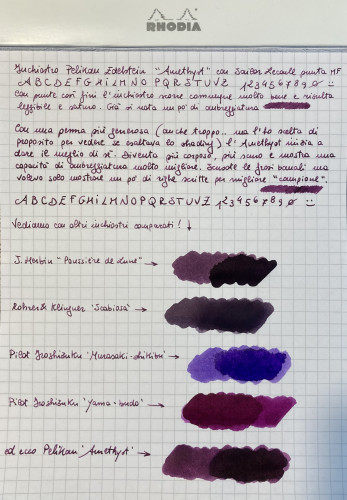 RHODIA
Inchiostro Pelikan Edelstein "Amethyst" con Sailor Recoule punta MF
A B C D E F G H I L M N O P Q R S T U V Z 1 2 3 4 5 6 7 8 9 0 :)
Con punte così fini l'inchiostro rende comunque molto bene e risulta
leggibile e saturo. Già si nota un po' di ombreggiatura
Con una penna più generosa (anche troppo... ma l'ho scelta di
proposito per vedere se esaltava lo shading) l'Amethyst inizia a
dare il meglio di sé. Diventa più corposo, più scuro e mostra una
capacità di ombreggiatura molto migliore. Scusate le frasi banali ma
volevo solo mostrare un po' di righe scritte per migliore "campione".
A B C D E F G H I L M N O P Q R S T U V Z 1 2 3 4 5 6 7 8 9 0 :)
Vediamo con altri inchiostri comparati! ↓
J. Herbin "Poussière de Lune" →
Rohrer & Klingner "Scabiosa" →
Pilot Iroshizuku "Murasaki-shikibu" →
Pilot Iroshizuku "Yama-budo" →
ed ecco Pelikan "Amethyst" →